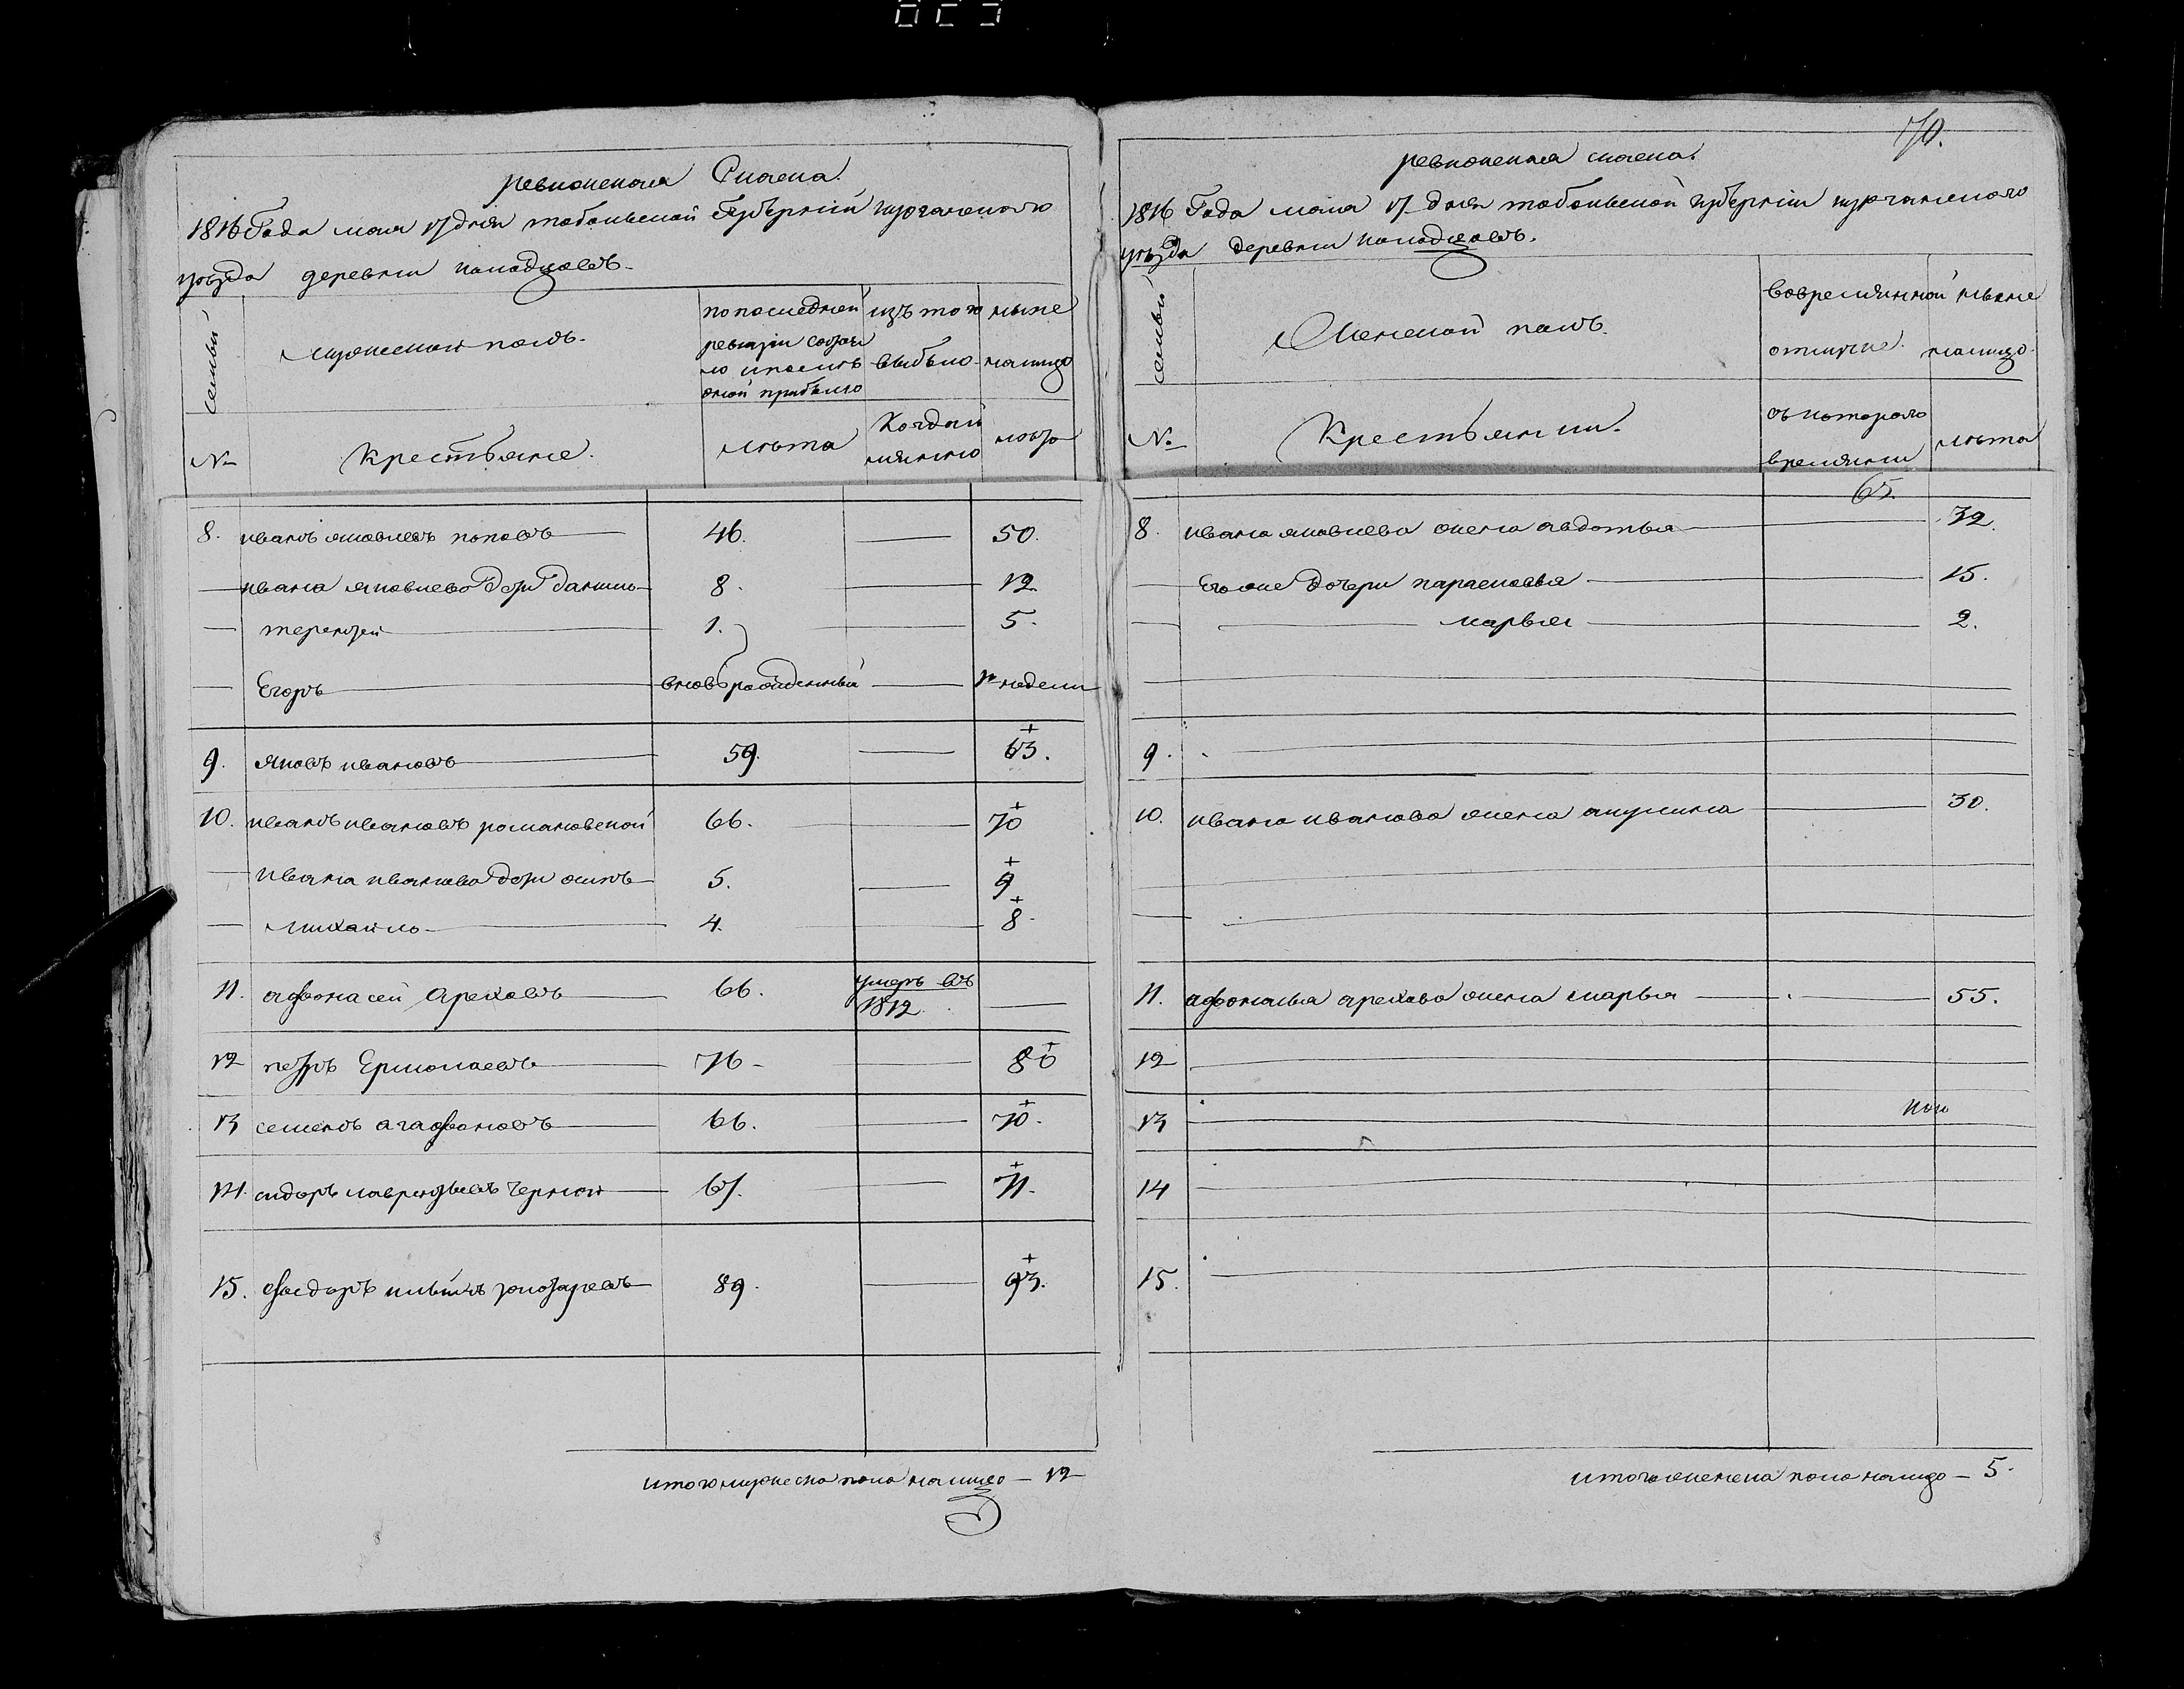 ревизская Сказка.
1816 Года маия 17 дня тобольской Губернии курганского
уезда деревни колодцовъ
семьи
мужеской полъ.
по последней
ревизии состоя
ло и после
оной прибыло
изъ того
выбыло
ныне
налицо
№
Крестьяне.
лѣта
Когда и
мянно
лѣта
8. иванъ яковлевъ поповъ 46. 50.
ивана яковлева дѣти данило 8. 12.
терентей 1. 5.
Егоръ вновь рожденный недели
9. яковъ ивановъ 59. 63.
10. иванъ ивановъ романовской 66. 70
ивана иванова дѣти осипъ 5. 9
михайло 4. 8.
11. афонасей Ареховъ 66. умеръ въ
1812
12 петръ Ермолаевъ 76 80
13 семенъ агафоновъ 66. 70.
14. сидоръ лаврентьевъ черной 67. 71.
15. федоръ 89. 93.
итого мужеска пола налицо — 12
70.
ревизская сказка.
1816 Года маия 17 дня тобольской губернии курганского
уезда деревни колодцовъ.
семьи
Женской полъ.
во временной
отлучке
ныне
налицо
№
Крестьянки.
съ которого
времяни
лѣта
65.
8. ивана яковлева жена авдотья 32.
Его же дочери парасковья 15.
марья 2.
9.
10. ивана иванова жена акулина 30.
11. афонасья арехова жена марья 55.
12
13
14
15.
итого женска пола налицо — 5.